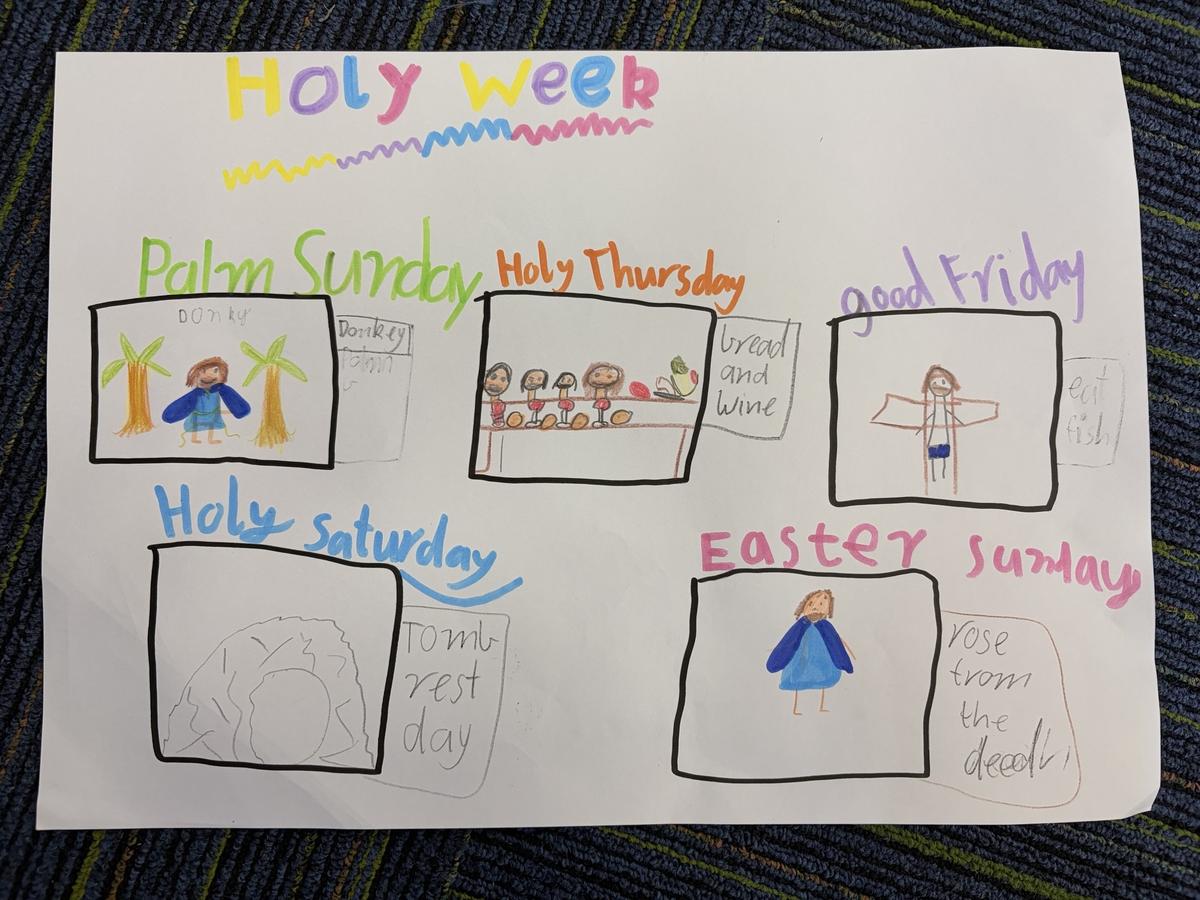 Holy Week
Palm Sunday
DOnky
Donkey
Palm
Holy Thursday
bread
and
wine
good Friday
eat
fish
Holy Saturday
Tomb
rest
day
Easter Sunday
rose
from
the